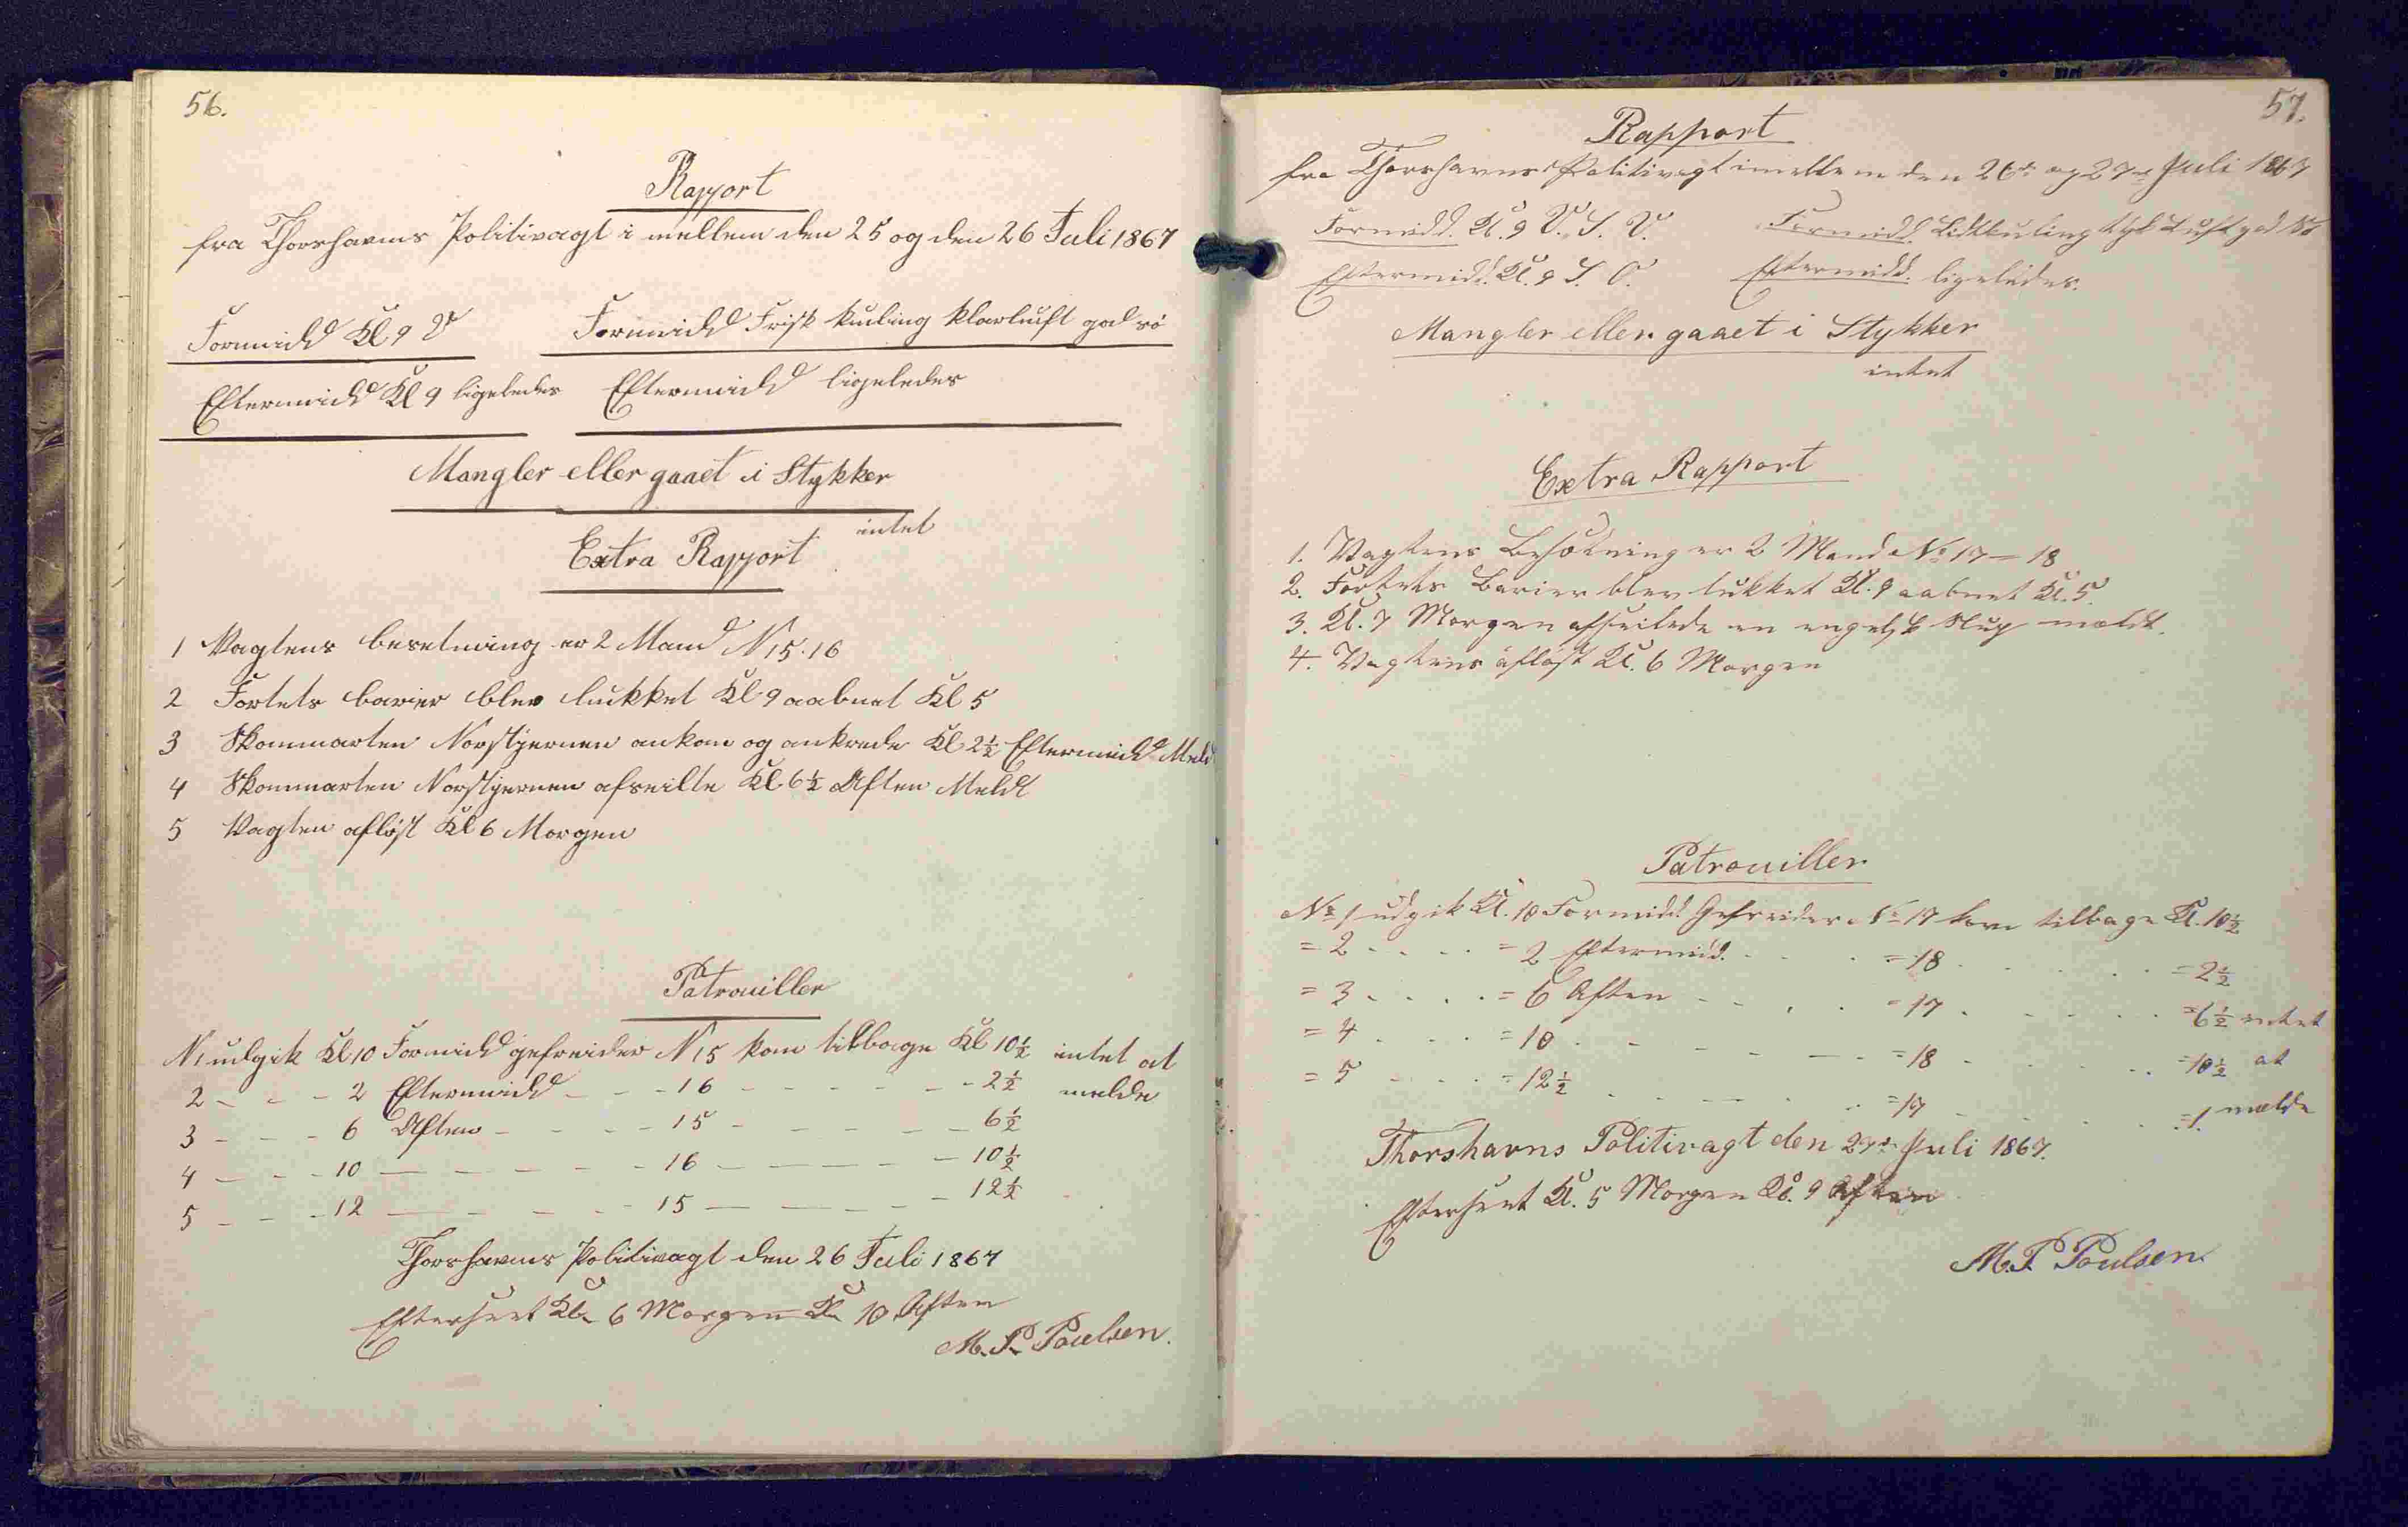 56.
Rapport
fra Thorshavns Politivagt i mellem den 25 og den 26 Juli 1867
Formidd Kl 9 V
Formidd Frisk kuling klarluft god sö
Eftermidd Kl 9 ligeledes
Eftermidd ligeledes
Mangler eller gaaet i Stykker
intet
Extra Rapport
1 Vagtens besetning er 2 Mand N 15.16
2 Fortets barier blev lukket Kl 9 aabnet Kl 5
3 Skonnarten Norstjernen ankom og ankrede Kl 2½ Eftermidd Meldt
4 Skonnarten Norstjernen afseilte Kl 6½ Aften Meldt
5 Vagten afløst Kl 6 Morgen
Patrouiller
N 1 udgik Kl 10 Formidd gefreider N 15 kom tilbage Kl 10½ intet at
2 - - - 2 Eftermidd - - - 16 - - - - - - 2½ melde
3 - - - 6 Aften - - - - 15 - - - - - 6½
4 - - - 10 - - - - - - 16 - - - - - 10½
5 - - - 12 - - - - - - 15 - - - - - 12½
Thorshavns Politivagt den 26 Juli 1867
Efterseet Kl. 6 Morgen Kl. 10 Aften
M. P. Poulsen.
57.
Rapport
fra Thorshavns Politivagt imellem den 26de og 27de Juli 1867
Formidd. Kl. 9 V. S. V.
Formidd. Lidtkuling tyk Luft god Sö
Eftermidd. Kl. 9 S. O.
Eftermidd. ligeledes.
Mangler eller gaaet i Stykker
intet
Extra Rapport
1. Vagtens Besætning er 2 Mand No 17 - 18
2. Fortets Barier blev lukket Kl. 9 aabnet Kl. 5.
3. Kl. 7 Morgen afseilede en engelsk Slup mældt.
4. Vagtens afløst Kl. 6 Morgen
Patrouiller
No 1 udgik Kl. 10 Formidd. Gefreider No 17 kom tilbage Kl. 10½
= 2 - - - - = 2 Eftermidd. - - - = 18 - - - - - = 2½
= 3 - - - - = 6 Aften - - - - = 17 - - - - - = 6½ intet
= 4 - - - - = 10 - - - - - = 18 - - - - - = 10½ at
= 5 - - - - = 12½ - - - - - = 17 - - - - - = 1. mælde
Thorshavns Politivagt den 27de Juli 1867.
Efterseet Kl. 5 Morgen Kl. 9 Aften
M. P. Poulsen.